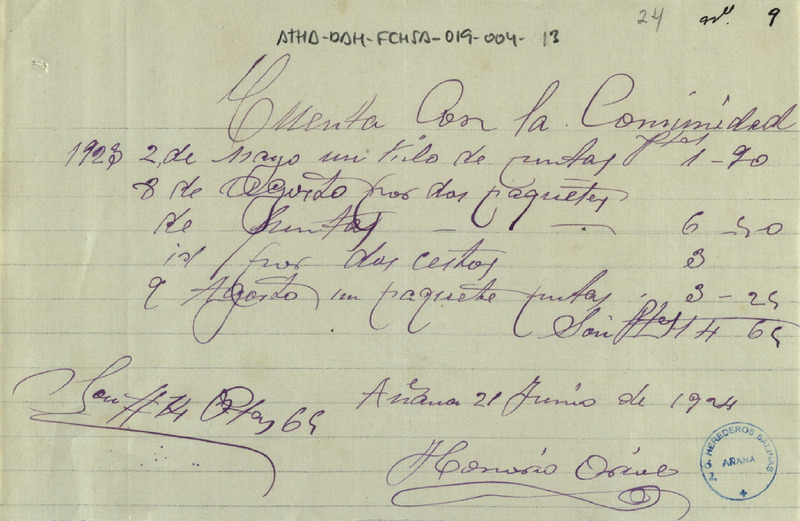 24 nº. 9
ATHA-DAH-FCHSA-019-004-13
Cuenta Con la Comunidad
1923 2 de Mayo un kilo de puntas ptas 1-90
8 de Agosto por dos paquetes
de Puntas — — 6-50
id por dos cestos 3
9 Agosto un paquete puntas. 3-25
Son Ptas 14 65
Son # 14 Ptas 65
Añana 21 Junio de 1924
Honorio
HEREDEROS SALINAS
AÑANA